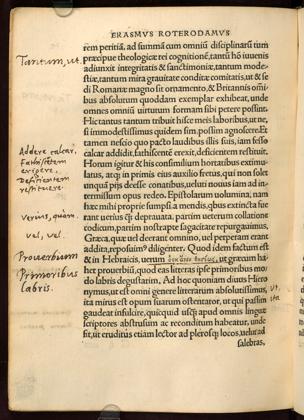 ERASMVS ROTERODAMVS
rem peritiā, ad summā cum omniū disciplinarū tum
præcipue theologicæ rei cognitionē, tantū hō iuuenis
adiunxit integritatis & sanctimoniæ, tantum mode-
stiæ, tantum mira grauitate conditæ comitatis, ut & se
di Romanæ magno sit ornamento, & Britannis omi
bus absolutum quoddam exemplar exhibeat, unde
omnes omniū uirtutum formam sibi petere possint.
Hic tantus tantum tribuit hisce meis laboribus, ut ne,
si immodestissimus quidem sim, possim agnoscere. Et
tamen nescio quo pacto laudibus illis suis, iam fesso
calcar addidit, fatiscentē erexit, deficientem restituit.
Horum igitur & his consimilium hortatibus extimu-
latus, atqi in primis eius auxilio fretus, qui non solet
unquā pijs deesse conatibus, ueluti nouus iam ad in-
termissum opus redeo. Epistolarum uolumina, nam
hæc mihi proprie sumpsi a mendis, quibus extincta fue
rant uerius q̄ deprauata, partim ueterum collatione
codicum, partim nostrapte sagacitate repurgauimus,
Græca, quæ uel deerant omnino, uel perperam erant
addita, reposuim⁹ diligenter. Quod idem factum est
& in Hebraicis, uerum
ut græcum ha-
bet prouerbiū, quod eas literas ipse primoribus mo
do labris degustarim. Ad hoc quoniam diuus Hiero
nymus, ut est omni genere litterarum absolutissimus,
ita mirus est opum suarum ostentator, ut qui passim
gaudeat insulcire, quicquid usq̄ apud omnis linguæ
scriptores abstrusum ac reconditum habeatur, unde
fit, ut eruditis etiam lector ad plerosq̄ locos, uelut ad
salebras,
Tantum, ut.
Addere calcar,
erigere,
Deficientem
restituere.
Verius, quàm.
vel, vel.
Proverbium
Primoribus
labris.